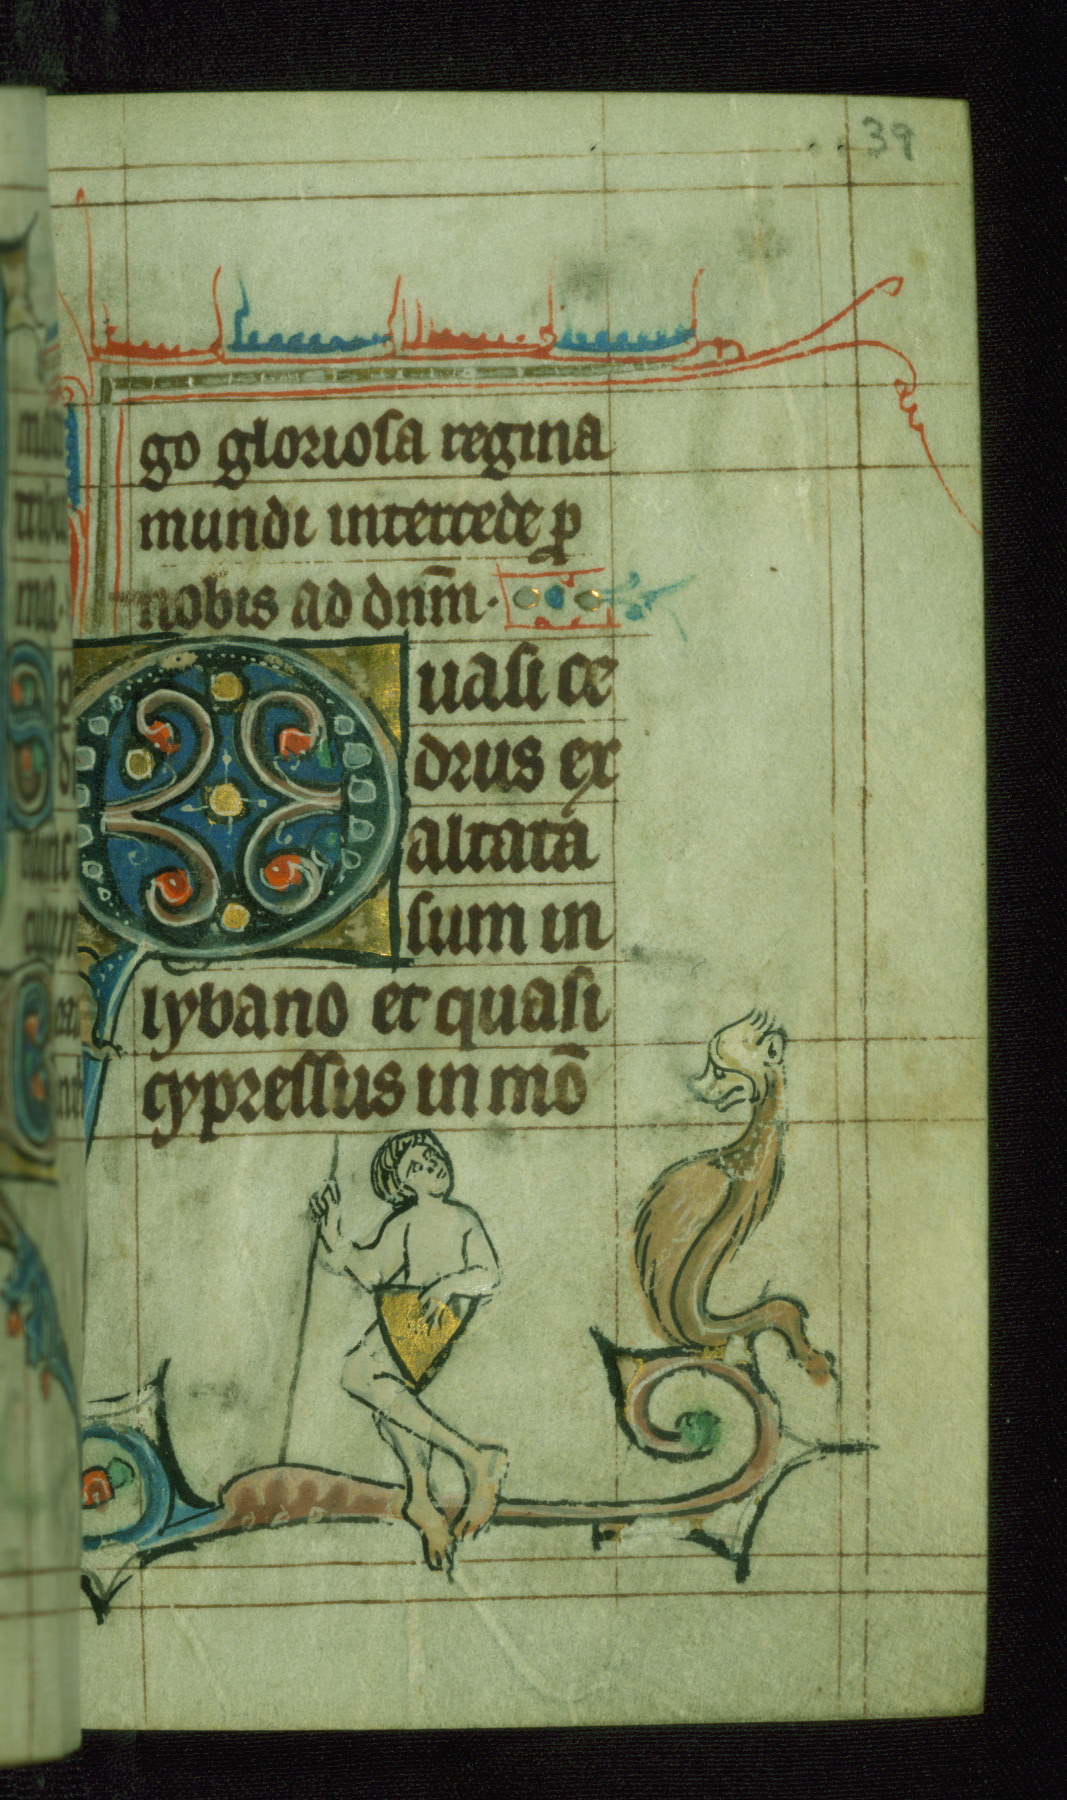 39
go gloriosa regina
mundi intercede p
nobis ad dnm̄.
Quasi ce
drus ex
altata
sum in
lybano et quasi
cypressus in mō